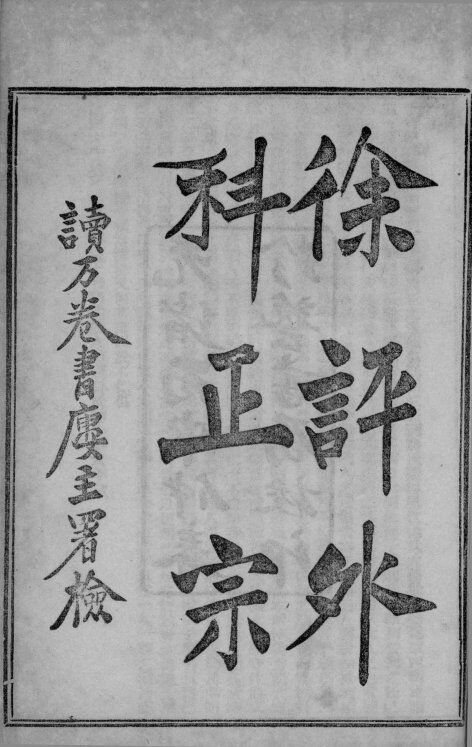 徐評外
科正宗
讀万卷書廔主署檢